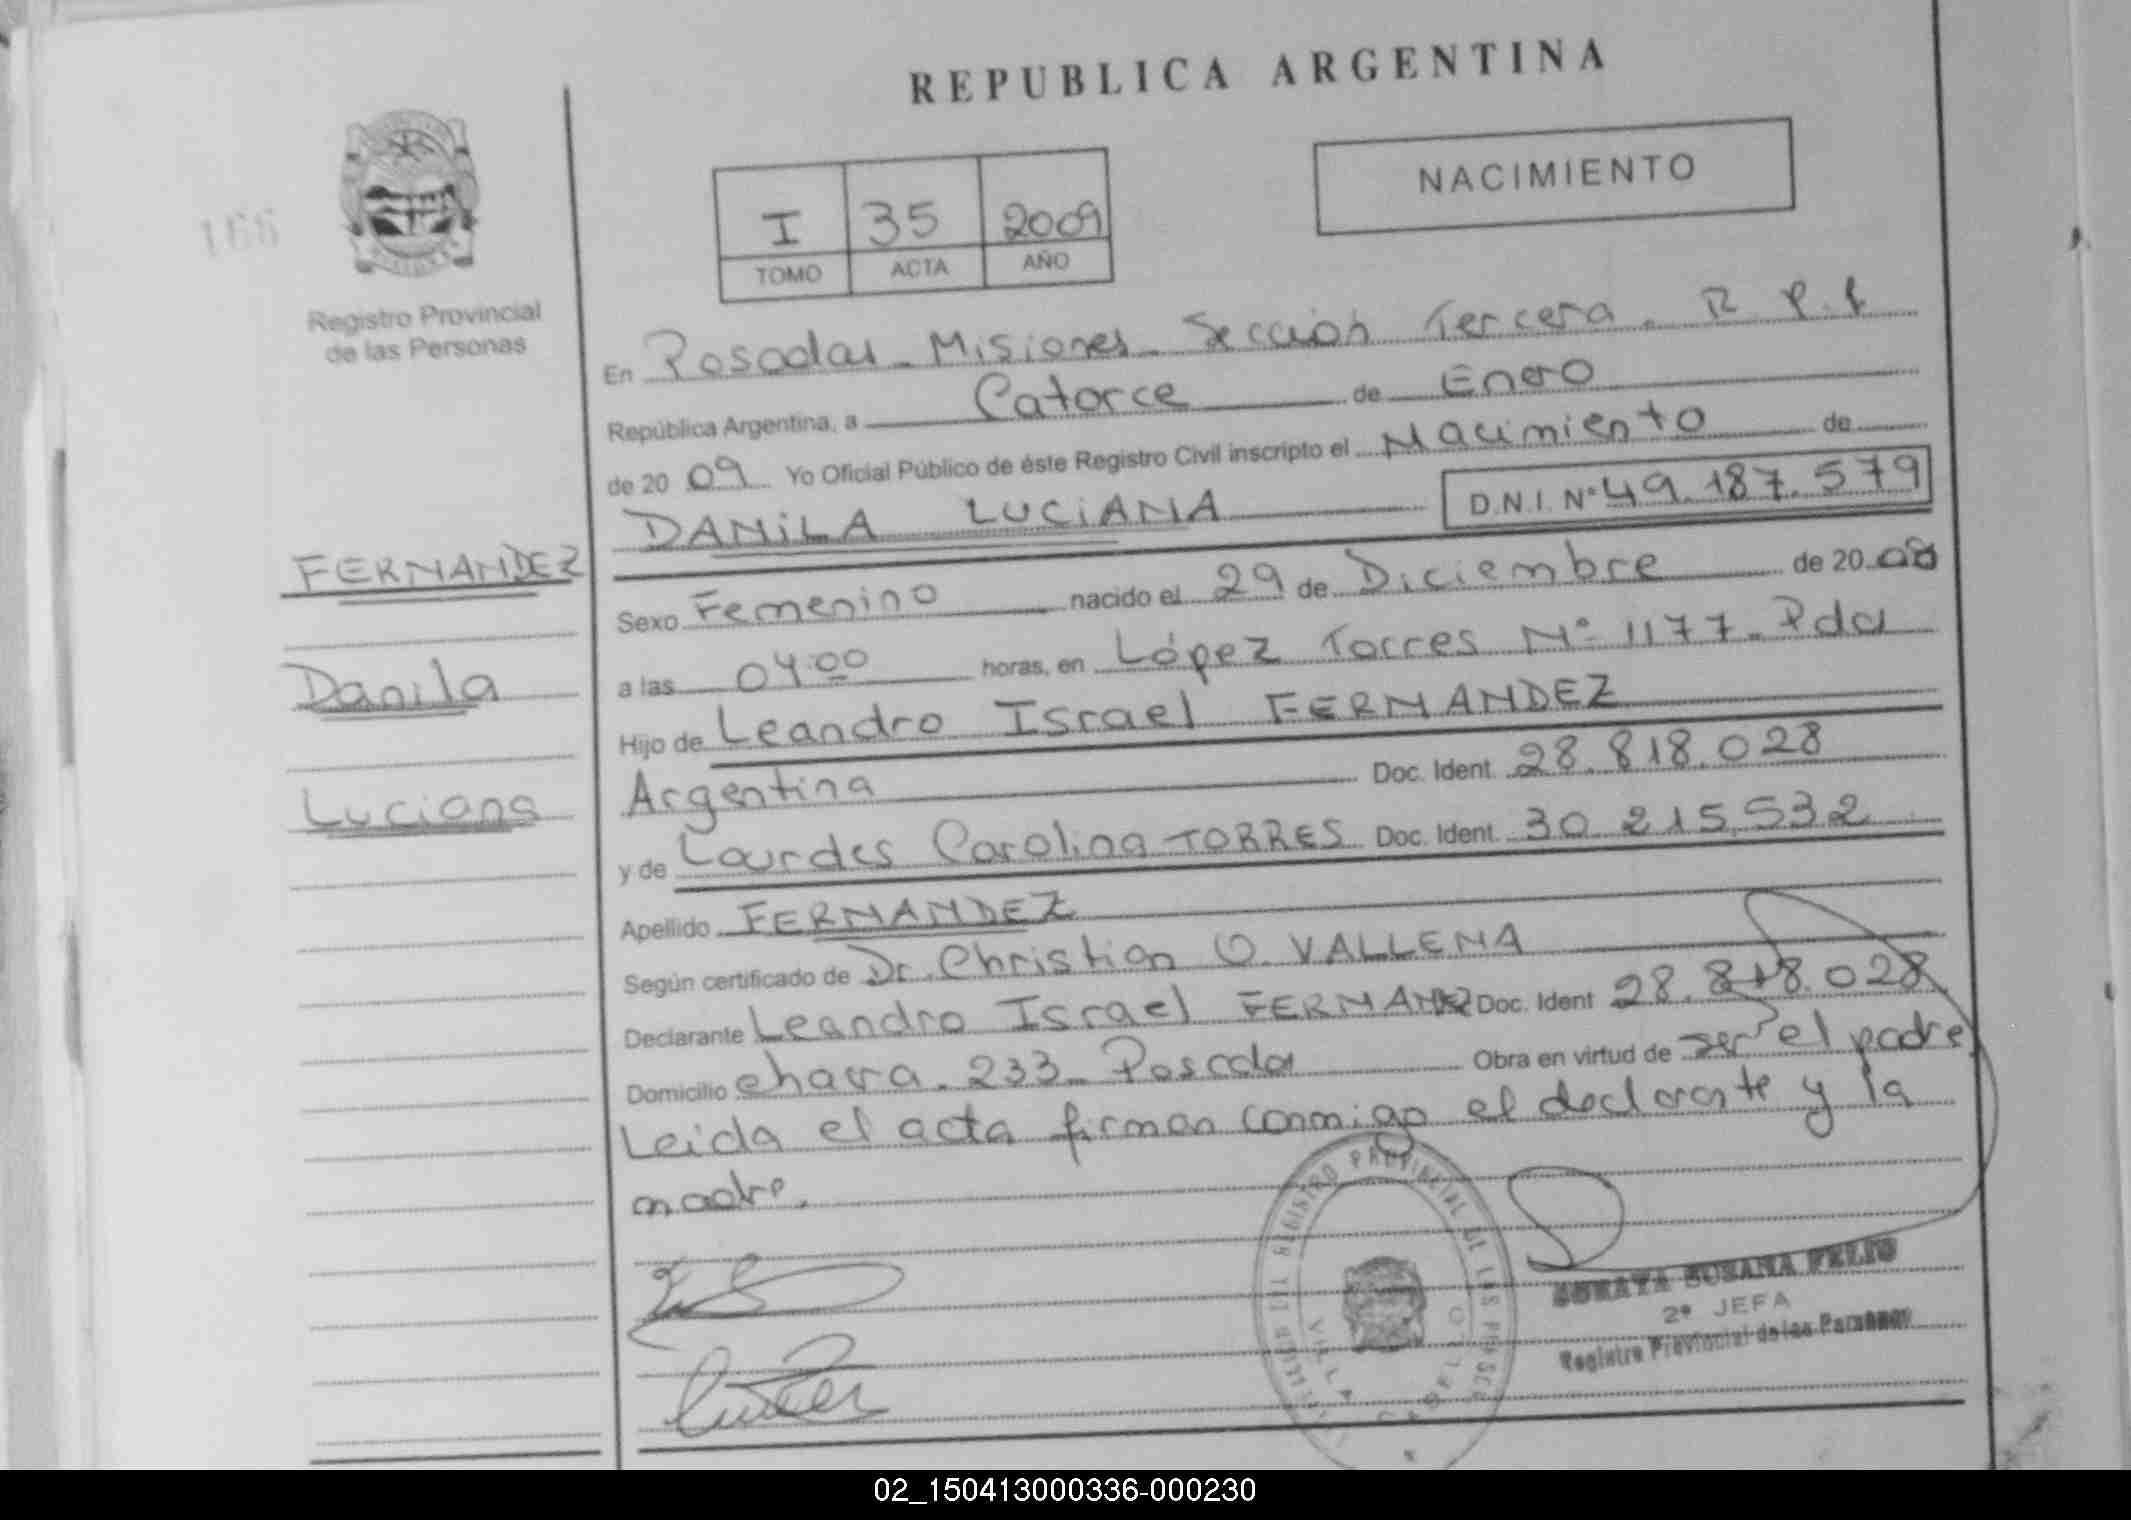 REPUBLICA ARGENTINA
166
Registro Provincial
de las Personas
I 35 2009
TOMO ACTA AÑO
NACIMIENTO
En Posadas - Misiones - Sección Tercera. R P. P
República Argentina, a Catorce de Enero
de 2009 Yo Oficial Público de éste Registro Civil inscripto el Nacimiento de
DANILA LUCIANA D.N.I. Nº 49.187.579
FERNANDEZ
Danila
Luciana
Sexo Femenino nacido el 29 de Diciembre de 2008
a las 04:00 horas, en López Torres Nº 1177 - Pdas
Hijo de Leandro Israel FERNANDEZ
Argentina Doc. Ident. 28.818.028
y de Lourdes Carolina TORRES Doc. Ident. 30.215.532
Apellido FERNANDEZ
Según certificado de Dr. Christian O. VALLENA
Declarante Leandro Israel FERNANDEZ Doc. Ident 28.818.028
Domicilio chacra. 233 - Posadas Obra en virtud de ser el padre
Leida el acta firman conmigo el declarante y la
madre.
REGISTRO PROVINCIAL DE LAS
VILLA CABELLO
SORAYA SUSANA FELIO
2º JEFA
Registro Provincial de las Personas
02_150413000336-000230